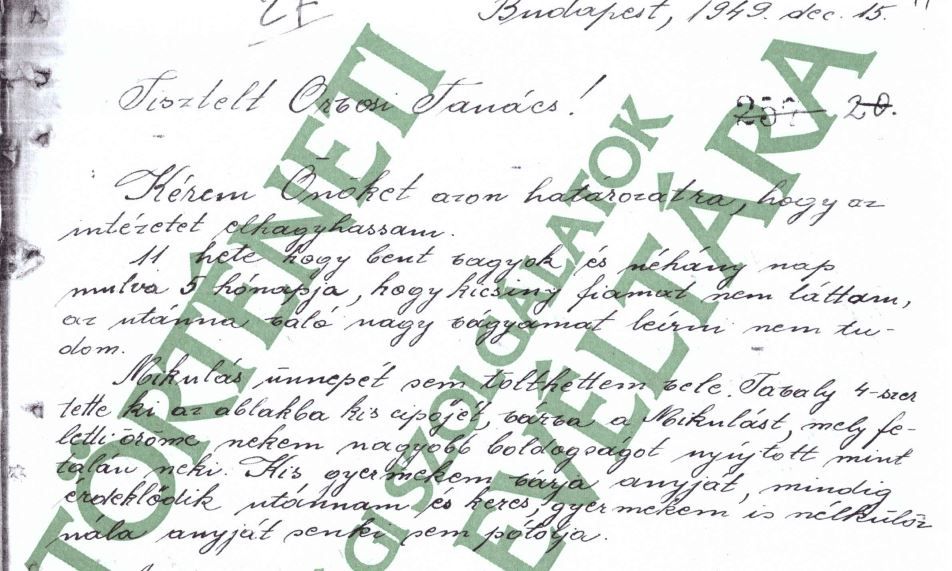 Budapest, 1949. dec. 15.
Tisztelt Orvosi Tanács!
257 20.
Kérem Önöket azon határozatra, hogy az
intézetet elhagyhassam.
11 hete hogy bent vagyok és néhány nap
mulva 5 hónapja, hogy kicsiny fiamat nem láttam,
az utánna való nagy vágyamat leírni nem tu-
dom.
Mikulás ünnepét sem tölthettem vele. Tavaly 4-szer
tette ki az ablakba kis cipőjét, várva a Mikulást, mely fe-
letti öröme, nekem nagyobb boldogságot nyújtott mint
talán neki. Kis gyermekem várja anyját, mindig
érdeklődik utánnam és keres, gyermekem is nélkülöz
nála anyját senki sem pótolja.
TÖRTÉNETI
SZOLGÁLATOK
LEVÉLTÁRA